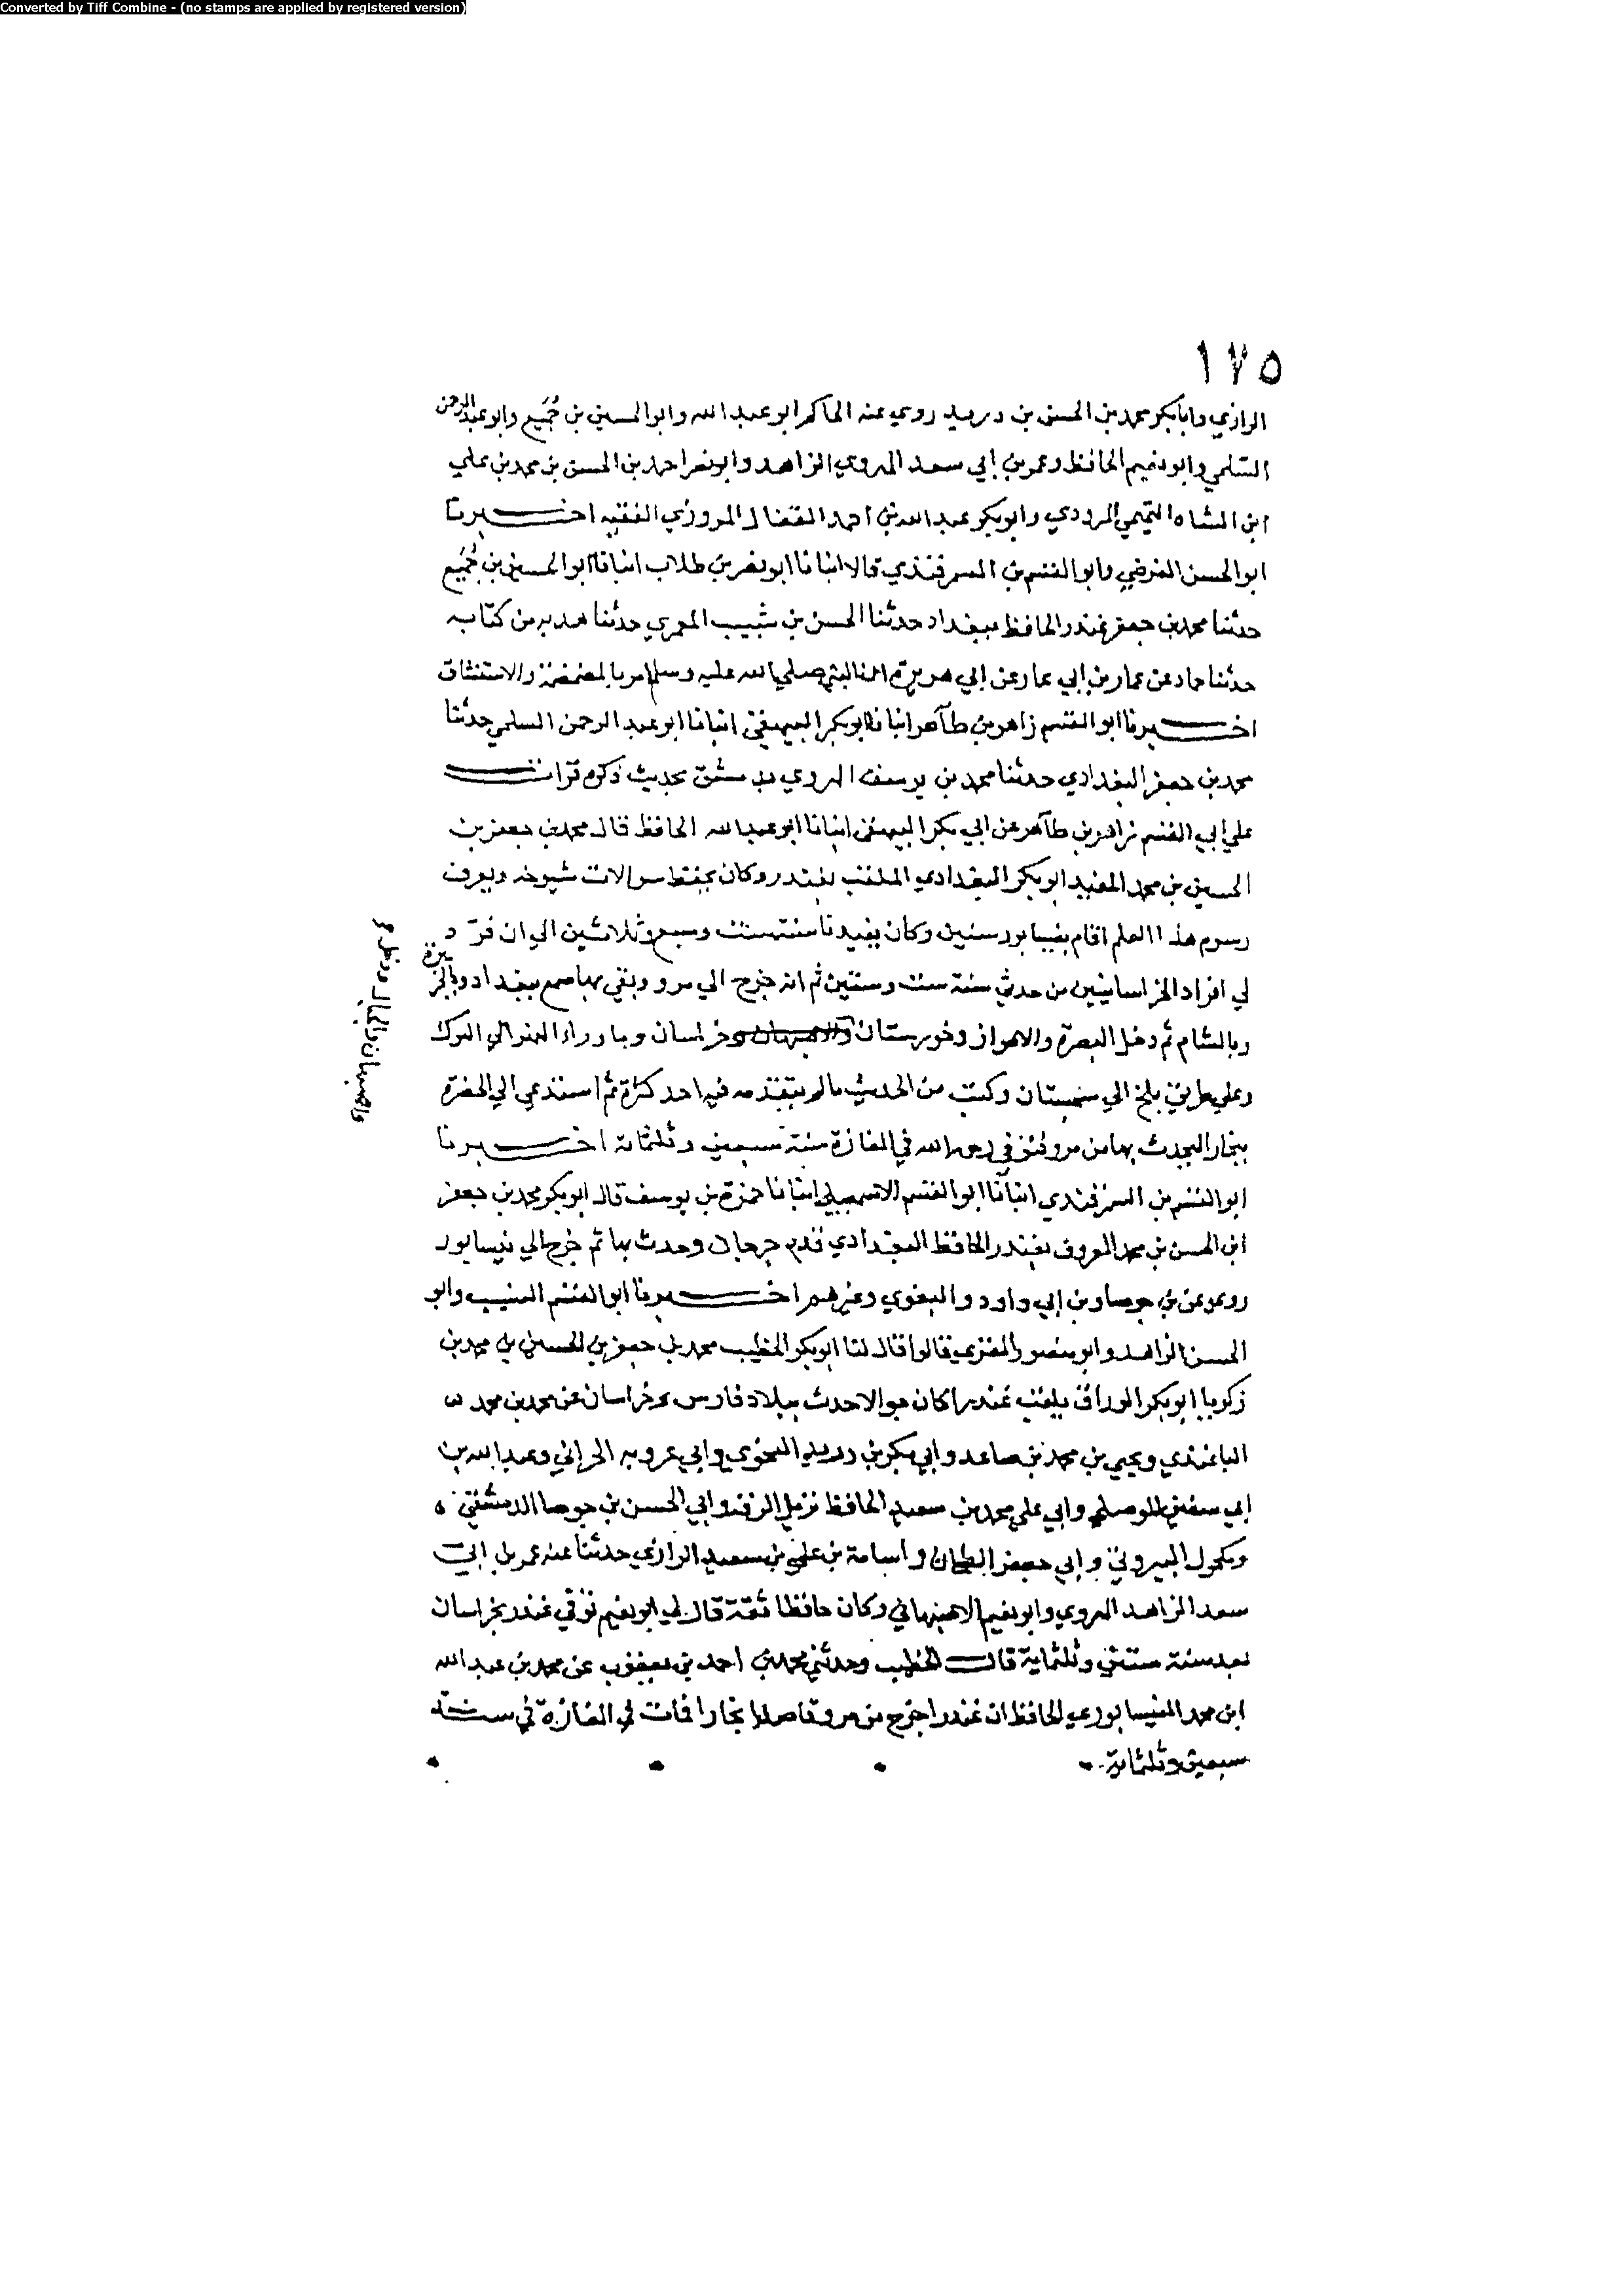 Converted by Tiff Combine - (no stamps are applied by registered version)
١٧٥
الرازي وابابكر محمد بن الحسن بن دريد روى عنه الحاكم ابو عبد الله وابو الحسين بن جُمَيع وابو عبد الرحمن
السلمي وابو نعيم الحافظ وعمر بن ابي سعد الهروي الزاهد وابو نصر احمد بن الحسن بن محمد بن علي
ابن الشاه التميمي المرودي وابو بكر عبد الله بن احمد القفال المروزي الفقيه اخبرنا
ابو الحسن الفرضي وابو القسم بن السمرقندي قالا انبانا ابو نصر بن طلاب انبانا ابو الحسين بن جُمَيع
حدثنا محمد بن جعفر غندر الحافظ ببغداد حدثنا الحسن بن شبيب المعمري حدثنا هدبه من كتابه
حدثنا حماد عن عمار بن ابي عمار عن ابي هريرة ان النبي صلي الله عليه وسلم امر بالمضمضة والاستنشاق
اخبرنا ابو القسم زاهر بن طاهر انبانا ابو بكر البيهقي انبانا ابو عبد الرحمن السلمي حدثنا
محمد بن جعفر البغدادي حدثنا محمد بن يوسف الهروي بدمشق بحديث ذكره قرات
علي ابي القسم زاهر بن طاهر عن ابي بكر البيهقي انبانا ابو عبد الله الحافظ قال محمد بن جعفر بن
الحسين بن محمد المفيد ابو بكر البغدادي الملقب بغندر وكان يحفظ سوالات شيوخه ويعرف
رسوم هذا العلم اقام بنيسابور سنين وكان يفيدنا سنة ست وسبع وثلاثين الي ان خرّد
لي افراد الخراسانيين من حديثي سنة ست وستين ثم انه خرج الي مرو وبقي بها سمع ببغداد وبالجزيرة
وبالشام ثم دخل البصرة والاهواز وخوزستان والاصبهان وخراسان وما وراء النهر الي الترك
واصبهان والجبال ودخل
وعلي طريق بلخ الي سجستان وكتب من الحديث ما لم يتقدمه فيه احد كثرة ثم استدعي الي الحضرة
ببخارا ليحدث بها من مرو فتوفي رحمه الله في المفازة سنة سبعين وثلثماية اخبرنا
ابو القسم بن السمرقندي انبانا ابو القسم الاسمعيلي انبانا حمزة بن يوسف قال ابو بكر محمد بن جعفر
ابن الحسن بن محمد المعروف بغندر الحافظ البغدادي قدم جرجان وحدث بها ثم خرج الي نيسابور
روى عن بن جوصا وبن ابي داود والبغوي وغيرهم اخبرنا ابو القسم النسيب وابو
الحسن الزاهد وابو منصور المقري قالوا قال لنا ابو بكر الخطيب محمد بن جعفر بن الحسين بن محمد بن
زكريا ابو بكر الوراق يلقب غندرا كان جوالا حدث ببلاد فارس وخراسان عن محمد بن محمد
الباغندي ويحيي بن محمد بن صاعد وابي بكر بن دريد النحوي وابي عروبه الحراني وعبد الله بن
ابي سفين الموصلي وابي علي محمد بن سعيد الحافظ نزيل الرقة وابي الحسن بن جوصا الدمشقي
ومكحول البيروتي وابي جعفر الطحان واسامة بن علي بن سعيد الرازي حدثنا عنه عمر بن ابي
سعد الزاهد الهروي وابو نعيم الاصبهاني وكان حافظا ثقة قال لي ابو نعيم توفي غندر بخراسان
بعد سنة ستين وثلثماية قال الخطيب وحدثني محمد بن احمد بن يعقوب عن محمد بن عبد الله
ابن محمد النيسابوري الحافظ ان غندرا خرج من مرو قاصدا بخارا فمات في المفازة في سنة
سبعين وثلثماية